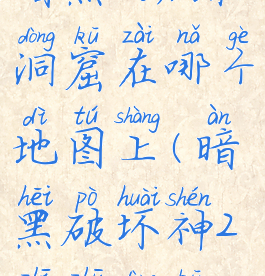 dòng kū zài nǎ gè
洞窟在哪个
dì tú shàng àn
地图上(暗
hēi pò huài shén
黑破坏神2